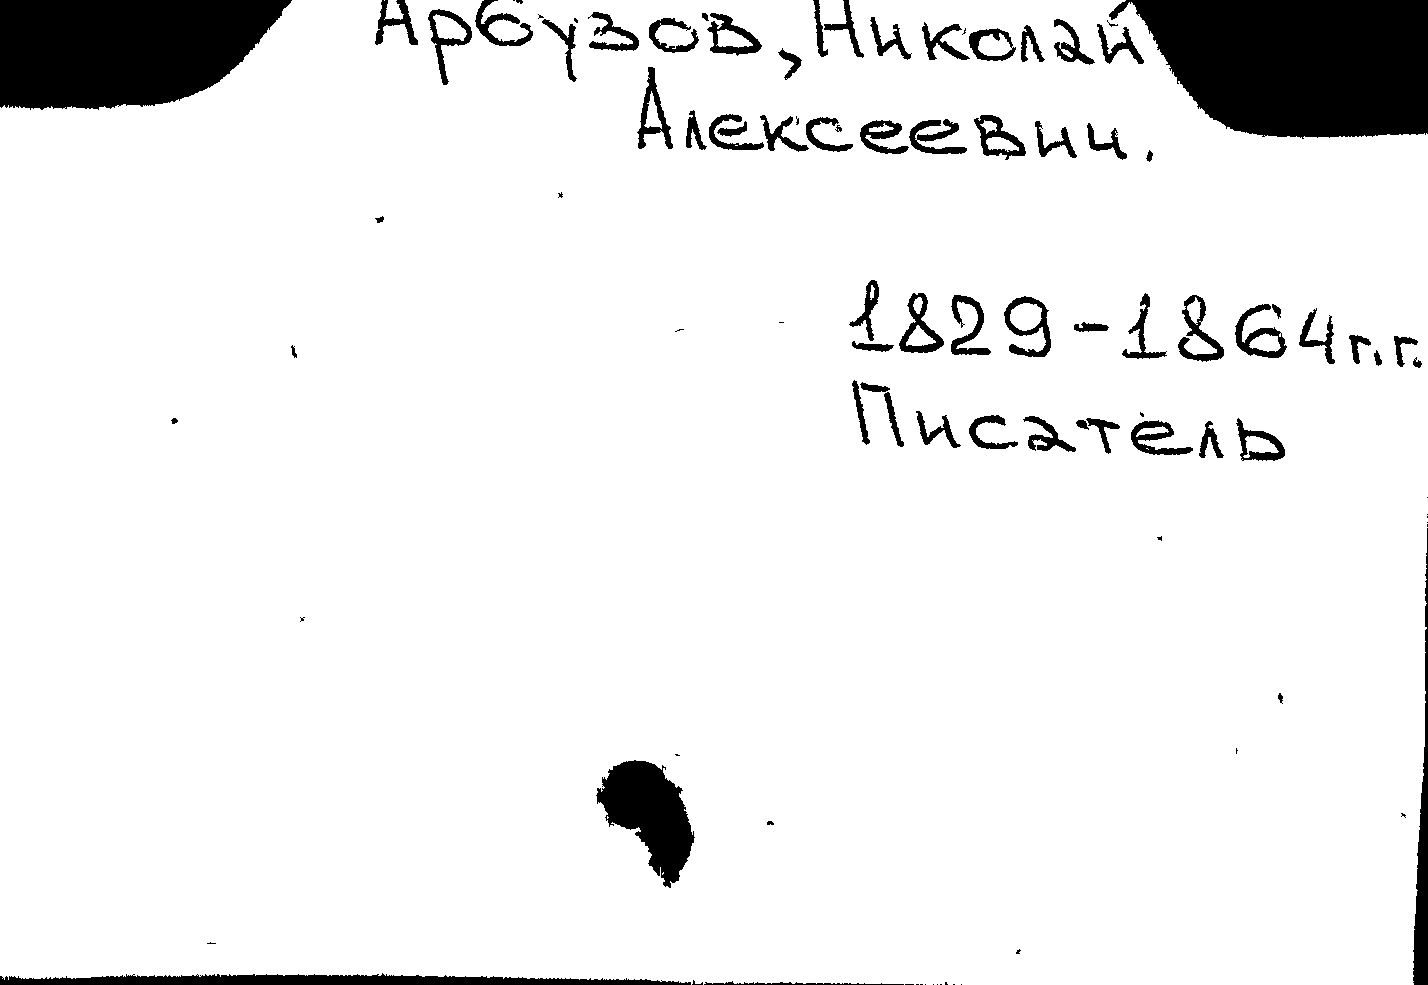 Арбузов, Николай
Алексеевич.
1829-1864г.г.
Писатель